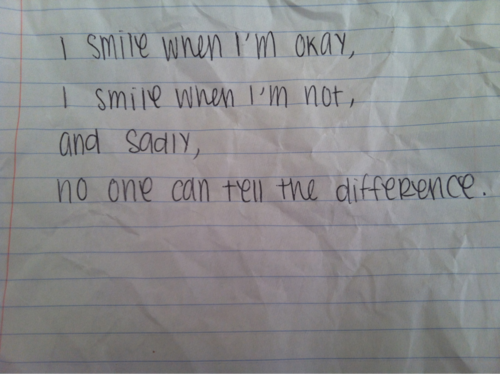 I smile when I'm okay,
I smile when I'm not,
and sadly,
no one can tell the difference.